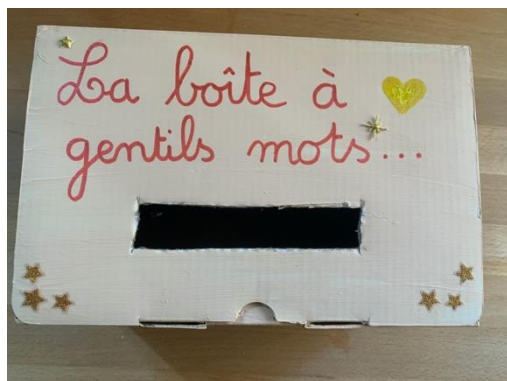 La boîte à
gentils mots...